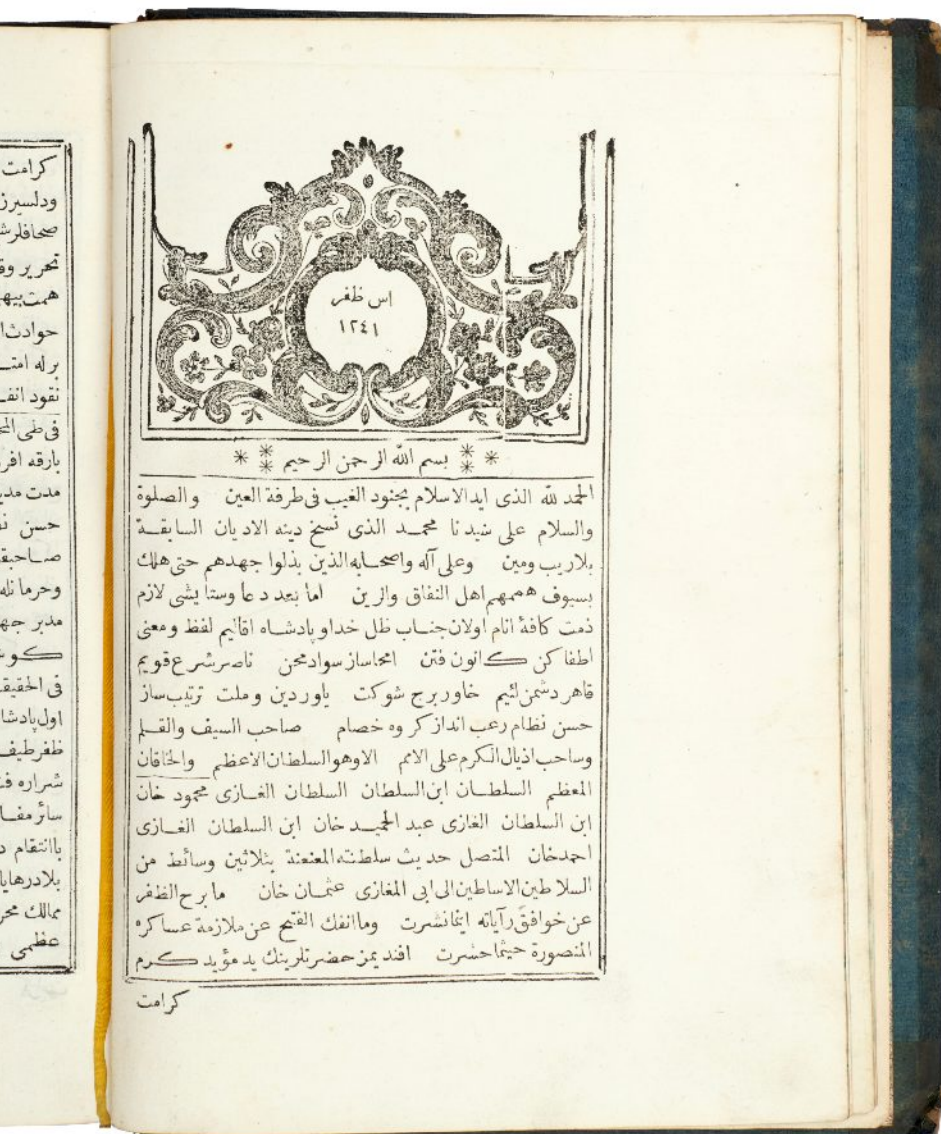 اس ظفر
١٢٤١
بسم الله الرحمن الرحيم
الحمد لله الذى ايد الاسلام بجنود الغيب فى طرفة العين والصلوة
والسلام على سيدنا محمد الذى نسخ دينه الاديان السابقة
بلاريب ومين وعلى آله واصحابه الذين بذلوا جهدهم حتى هلك
بسيوف هممهم اهل النفاق والرين اما بعد دعا وستايشى لازم
ذمت كافۀ انام اولان جناب ظل خدا وپادشاه اقاليم لفظ ومعنى
اطفا كن كانون فتن امحاساز سواد محن ناصر شرع قويم
قاهر دشمن لئيم خاور برج شوكت ياور دين وملت ترتيب ساز
حسن نظام رعب انداز كروه خصام صاحب السيف والقلم
وساحب اذيال الكرم على الامم الا وهو السلطان الاعظم والخاقان
المعظم السلطان ابن السلطان السلطان الغازى محمود خان
ابن السلطان الغازى عبد الحميد خان ابن السلطان الغازى
احمد خان المتصل حديث سلطنته المعنعنة بثلاثين وسائط من
السلاطين الاساطين الى ابى المغازى عثمان خان ما برح الظفر
عن خوافق رآياته اينما نشرت وما انفك الفتح عن ملازمة عساكره
المنصورة حيثما حشرت افنديمز حضرتلرينك يد مؤيد كرم
كرامت
كرامت
ودلسيرز
صحافلر
تحرير
همت
حوادث
برله
نقود
فى طى
بارقه
مدت
حسن
صاحبقر
وحرمانله
مدبر
فى الحقيقه
اول پادشا
ظفر
شراره
سائر
باانتقام
بلادر
ممالك
عظمى